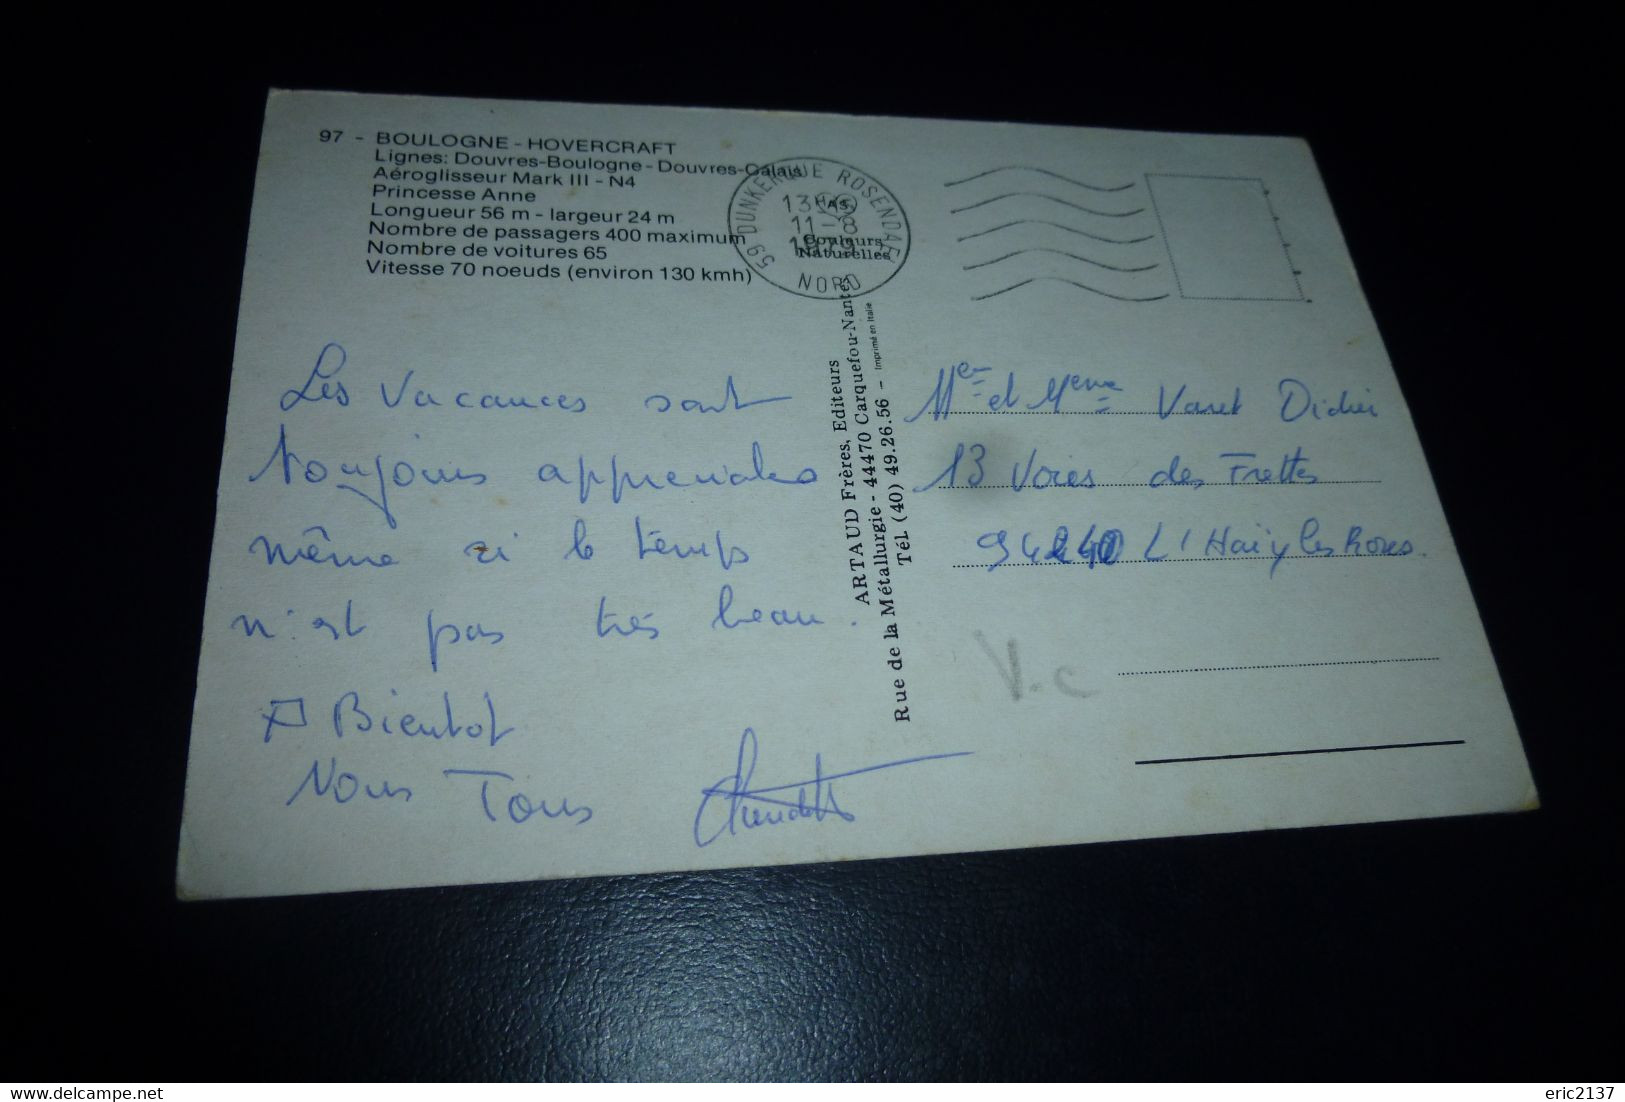 97 - BOULOGNE - HOVERCRAFT
Lignes: Douvres-Boulogne - Douvres-Calais
Aéroglisseur Mark III - N4
Princesse Anne
Longueur 56 m - largeur 24 m
Nombre de passagers 400 maximum
Nombre de voitures 65
Vitesse 70 noeuds (environ 130 kmh)
59 DUNKERQUE ROSENDAEL
13 H
11 - 8
NORD
Couleurs
Naturelles
Les Vacances sont
toujours appreciales
même si le temps
n'est pas très beau.
A Bientot
Nous Tous
ARTAUD Frères, Editeurs
Rue de la Métallurgie - 44470 Carquefou-Nantes
Tél. (40) 49.26.56 - Imprimé en Italie
Mer et Meme Varet Didier
13 Voies des Frettes
94240 L'Haÿ les Roses.
V.C
eric2137